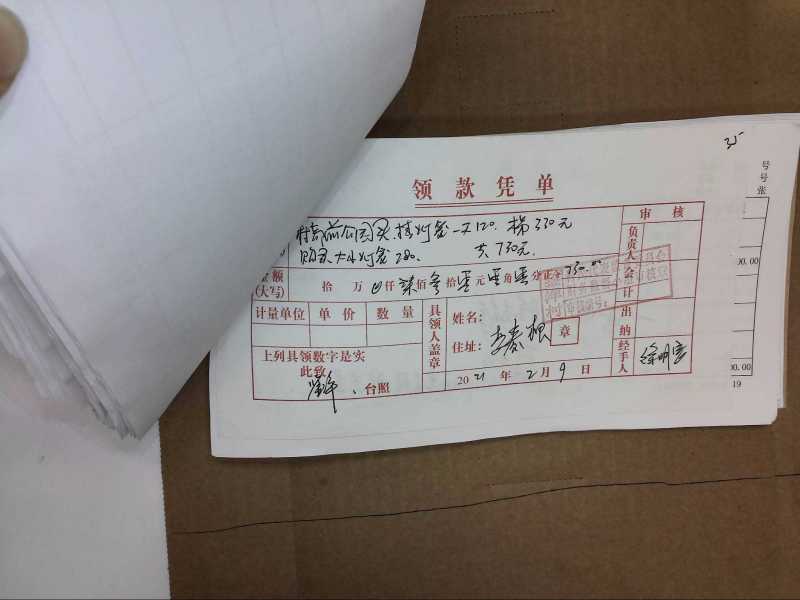 35
号
号
张
领款凭单
公园 挂灯笼一天120. 梯330元
大小灯笼280. 共730元.
审核
负责人
会计
出纳
经手人
金额(大写) 拾 万 仟柒佰叁拾零元零角零分正 730.00
计量单位 单价 数量
具领人盖章
姓名:
住址:
李春根
章
上列具领数字是实
此致
台照
2021年2月9日
00.00
00.00
19